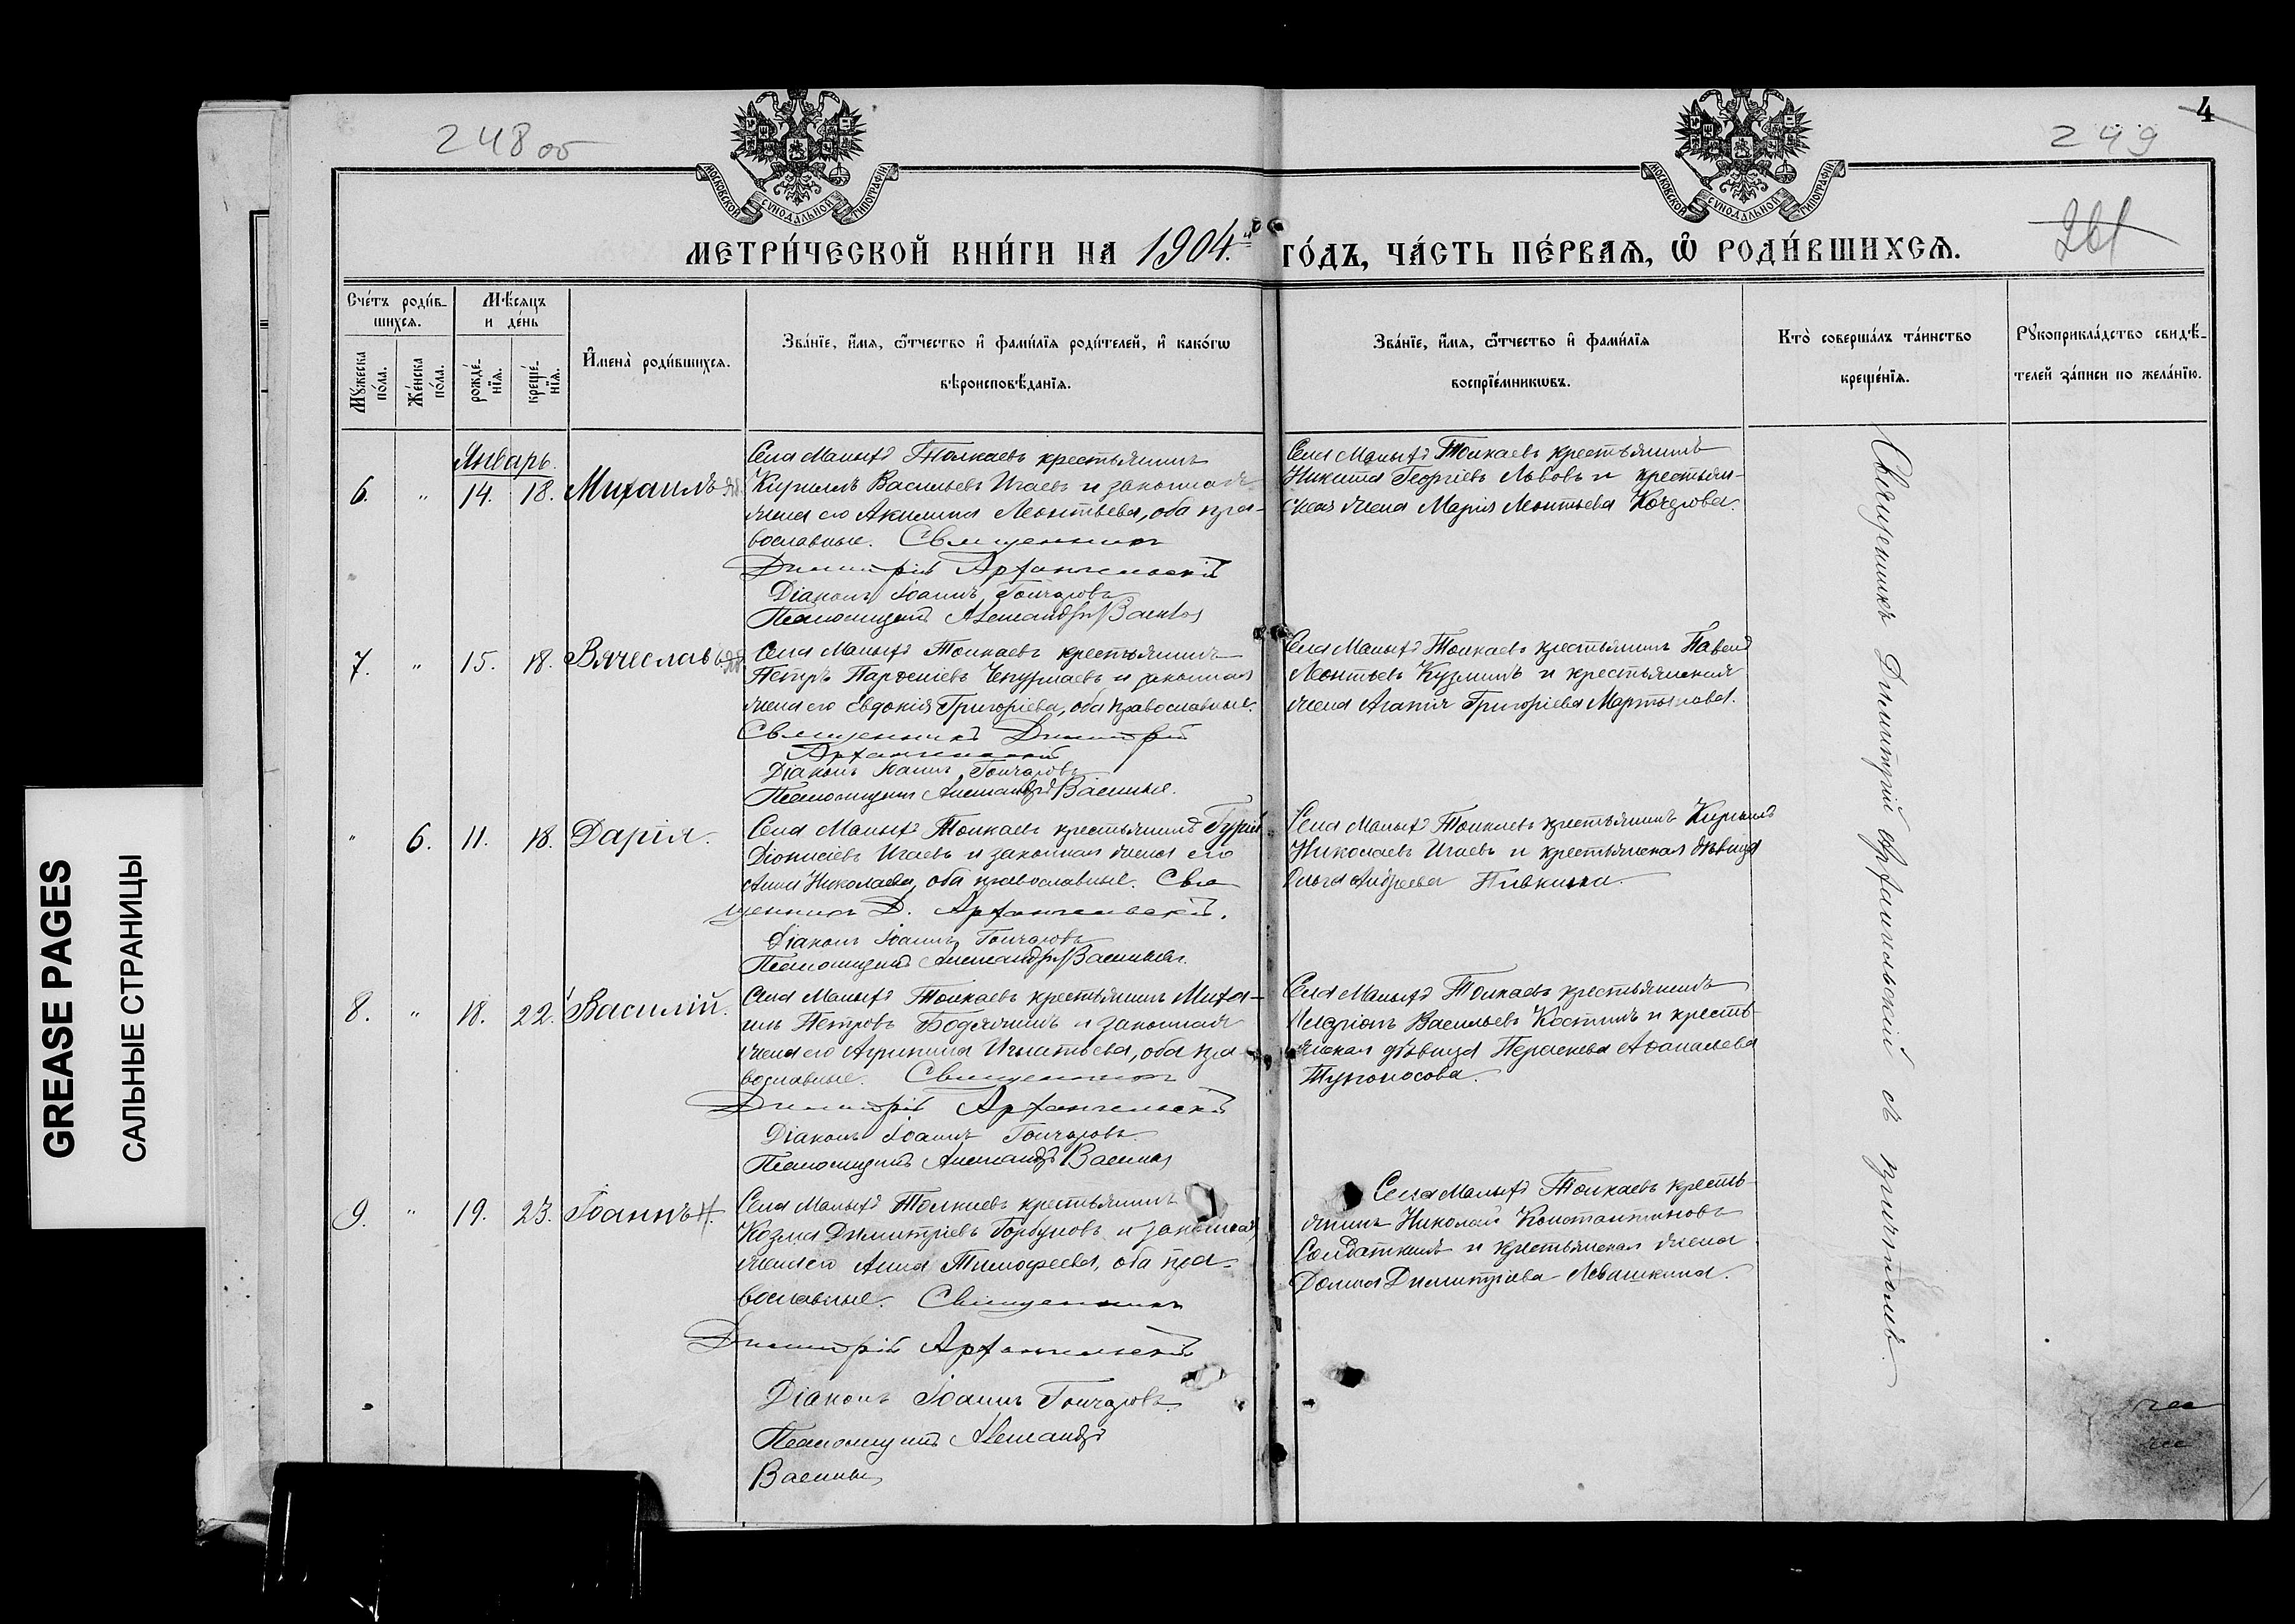 248 об
4
249
261
МОСКОВСКОЙ СѴНОДАЛЬНОЙ ТИПОГРАФІИ
МОСКОВСКОЙ СѴНОДАЛЬНОЙ ТИПОГРАФІИ
МЕТРИ́ЧЕСКОЙ КНИ́ГИ НА 1904.й ГО́ДЪ, ЧА́СТЬ ПЕ́РВАѦ, Ѡ҆ РОДИ́ВШИХСѦ.
Сче́тъ роди́в-
шихсѧ.
Мꙋ́жеска по́ла.
Же́нска по́ла.
Мѣ́сѧцъ
и де́нь
рожде́-
нїѧ.
креще́-
нїѧ.
И҆мена̀ роди́вшихсѧ.
Зва́нїе, и҆́мѧ, ѻ҆́тчество и҆ фами́лїѧ роди́телей, и҆ како́гѡ
вѣроисповѣ́данїѧ.
Зва́нїе, и҆́мѧ, ѻ҆́тчество и҆ фами́лїѧ
воспрїе́мникѡвъ.
Кто̀ соверша́лъ та́инство
креще́нїѧ.
Рꙋкоприкла́дство свидѣ́-
телей за́писи по жела́нїю.
Январь.
6. " 14. 18. Михаилъ
Села Малыхъ Толкаевъ крестьянинъ
Кириллъ Васильевъ Игаевъ и законная
жена его Акилина Леонтьева, оба пра-
вославные. Священникъ
Димитрій Архангельскій
Діаконъ Іоаннъ Гончаровъ
Псаломщикъ Александръ Васильевъ
Села Малыхъ Толкаевъ крестьянинъ
Никита Георгіевъ Львовъ и крестьян-
ская жена Марія Леонтьева Кочерова.
7. " 15. 18. Вячеславъ
Села Малыхъ Толкаевъ крестьянинъ
Петръ Парѳеніевъ Чепурнаевъ и законная
жена его Евдокія Григоріева, оба православные.
Священникъ Димитрій
Архангельскій
Діаконъ Іоаннъ Гончаровъ
Псаломщикъ Александръ Васильевъ.
Села Малыхъ Толкаевъ крестьянинъ Павелъ
Леонтьевъ Кузминъ и крестьянская
жена Агапія Григоріева Мартынова.
" 6. 11. 18. Дарія.
Села Малыхъ Толкаевъ крестьянинъ Гурій
Діонисіевъ Игаевъ и законная жена его
Анна Николаева, оба православные. Свя
щенникъ Д. Архангельскій.
Діаконъ Іоаннъ Гончаровъ
Псаломщикъ Александръ Васильевъ.
Села Малыхъ Толкаевъ крестьянинъ Кириллъ
Николаевъ Игаевъ и крестьянская дѣвица
Ольга Андреева Пивкина.
8. " 18. 22. Василій.
Села Малыхъ Толкаевъ крестьянинъ Миха-
илъ Петровъ Бодячинъ и законная
жена его Агрипина Игнатьева, оба пра-
вославные. Священникъ
Димитрій Архангельскій
Діаконъ Іоаннъ Гончаровъ
Псаломщикъ Александръ Васильевъ
Села Малыхъ Толкаевъ крестьянинъ
Иларіонъ Васильевъ Костинъ и кресть-
янская дѣвица Параскева Аѳанасьева
Тупоносова.
9. " 19. 23. Іоаннъ
Села Малыхъ Толкаевъ крестьянинъ
Козма Димитріевъ Горбуновъ и законная
жена его Анна Тимофеева, оба пра-
вославные. Священникъ
Димитрій Архангельскій
Діаконъ Іоаннъ Гончаровъ.
Псаломщикъ Александръ
Васильевъ
Села Малыхъ Толкаевъ кресть-
янинъ Николай Константиновъ
Солдаткинъ и крестьянская жена
Домна Димитріева Левашкина.
Священникъ Димитрій Архангельскій съ причтомъ.
GREASE PAGES
САЛЬНЫЕ СТРАНИЦЫ